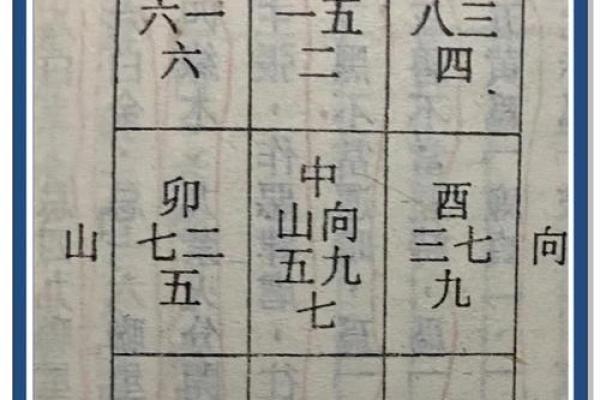 六一
六
一五
二
八三
四
山
卯
七二
五
中
山向
五九
七
酉
三七
九
向